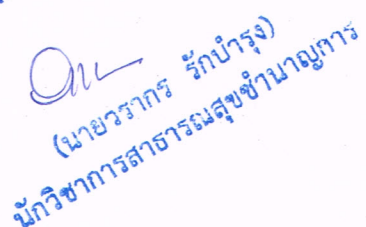 (นายวรากร รักบำรุง)
นักวิชาการสาธารณสุขชำนาญการ